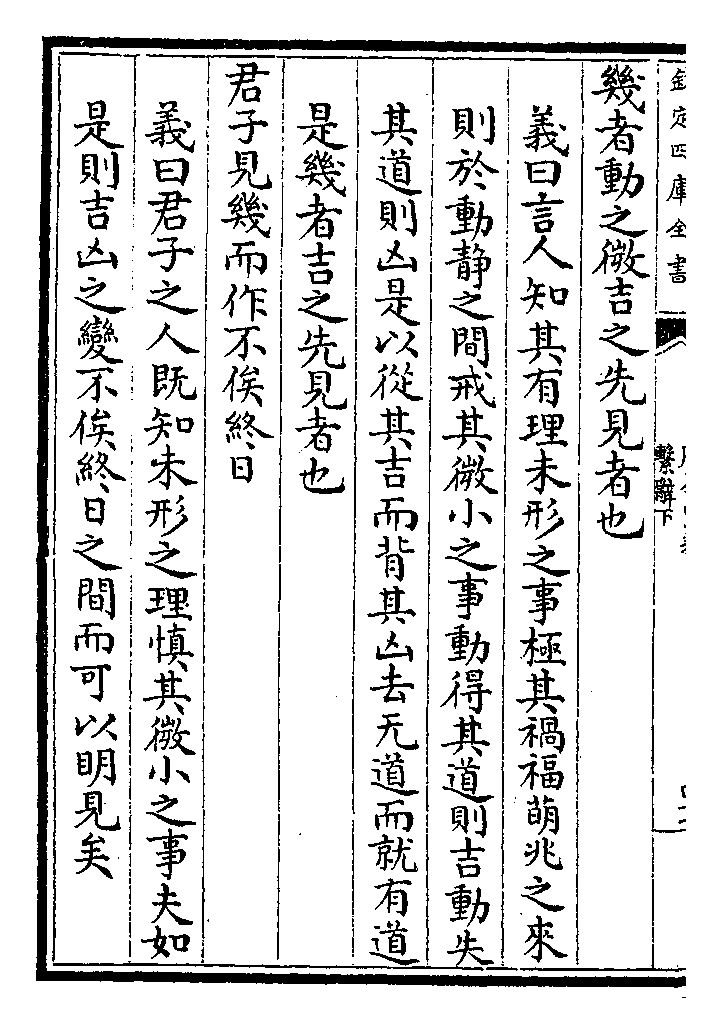 欽定四庫全書
繫辭下
幾者動之微吉之先見者也
義曰言人知其有理未形之事極其禍福萌兆之來
則於動静之間戒其微小之事動得其道則吉動失
其道則凶是以從其吉而背其凶去无道而就有道
是幾者吉之先見者也
君子見幾而作不俟終日
義曰君子之人既知未形之理慎其微小之事夫如
是則吉凶之變不俟終日之間而可以明見矣